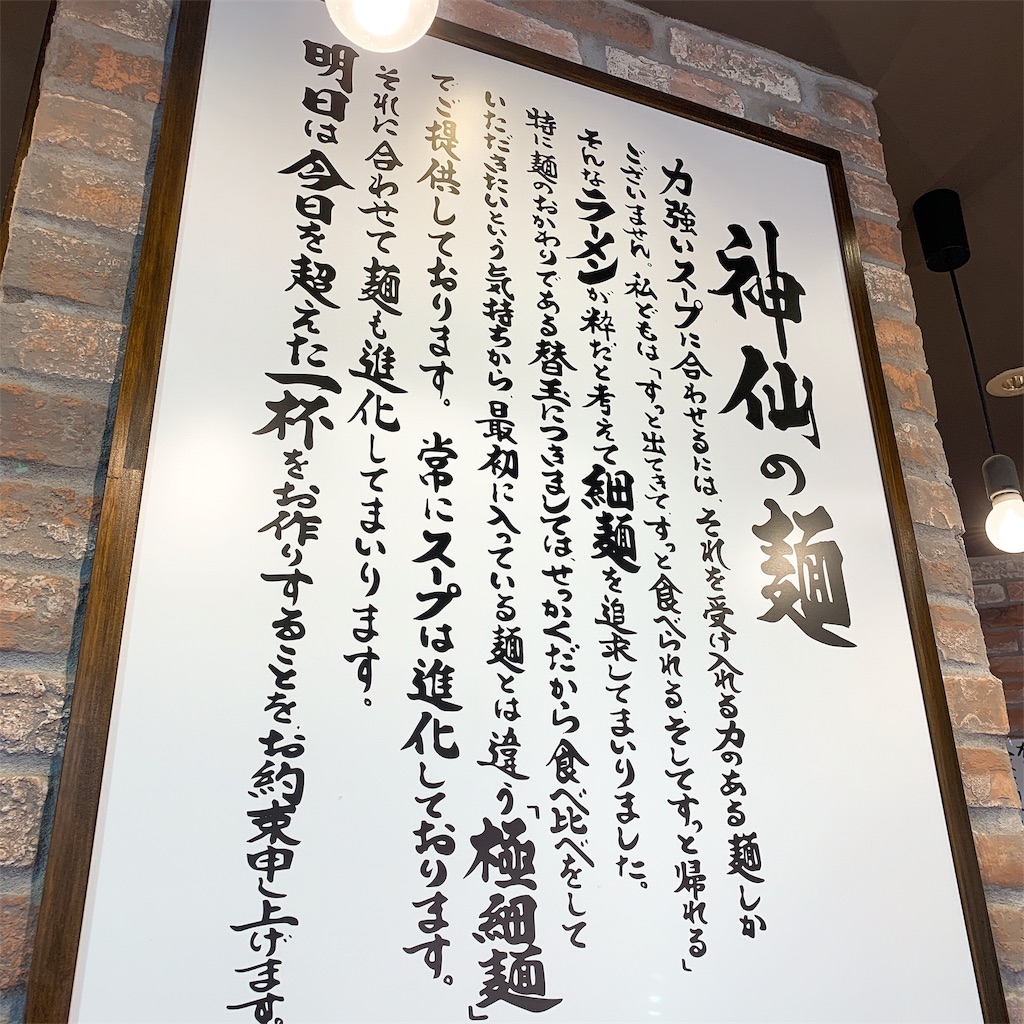 神仙の麺
力強いスープに合わせるには、それを受け入れる力のある麺しか
ございません。私どもは「すっと出てきてすっと食べられる、そしてすっと帰れる」
そんなラーメンが粋だと考えて細麺を追求してまいりました。
特に麺のおかわりである替玉につきましてはせっかくだから食べ比べをして
いただきたいという気持ちから、最初に入っている麺とは違う「極細麺」
でご提供しております。常にスープは進化しております。
それに合わせて麺も進化してまいります。
明日は今日を超えた一杯をお作りすることを、お約束申し上げます。